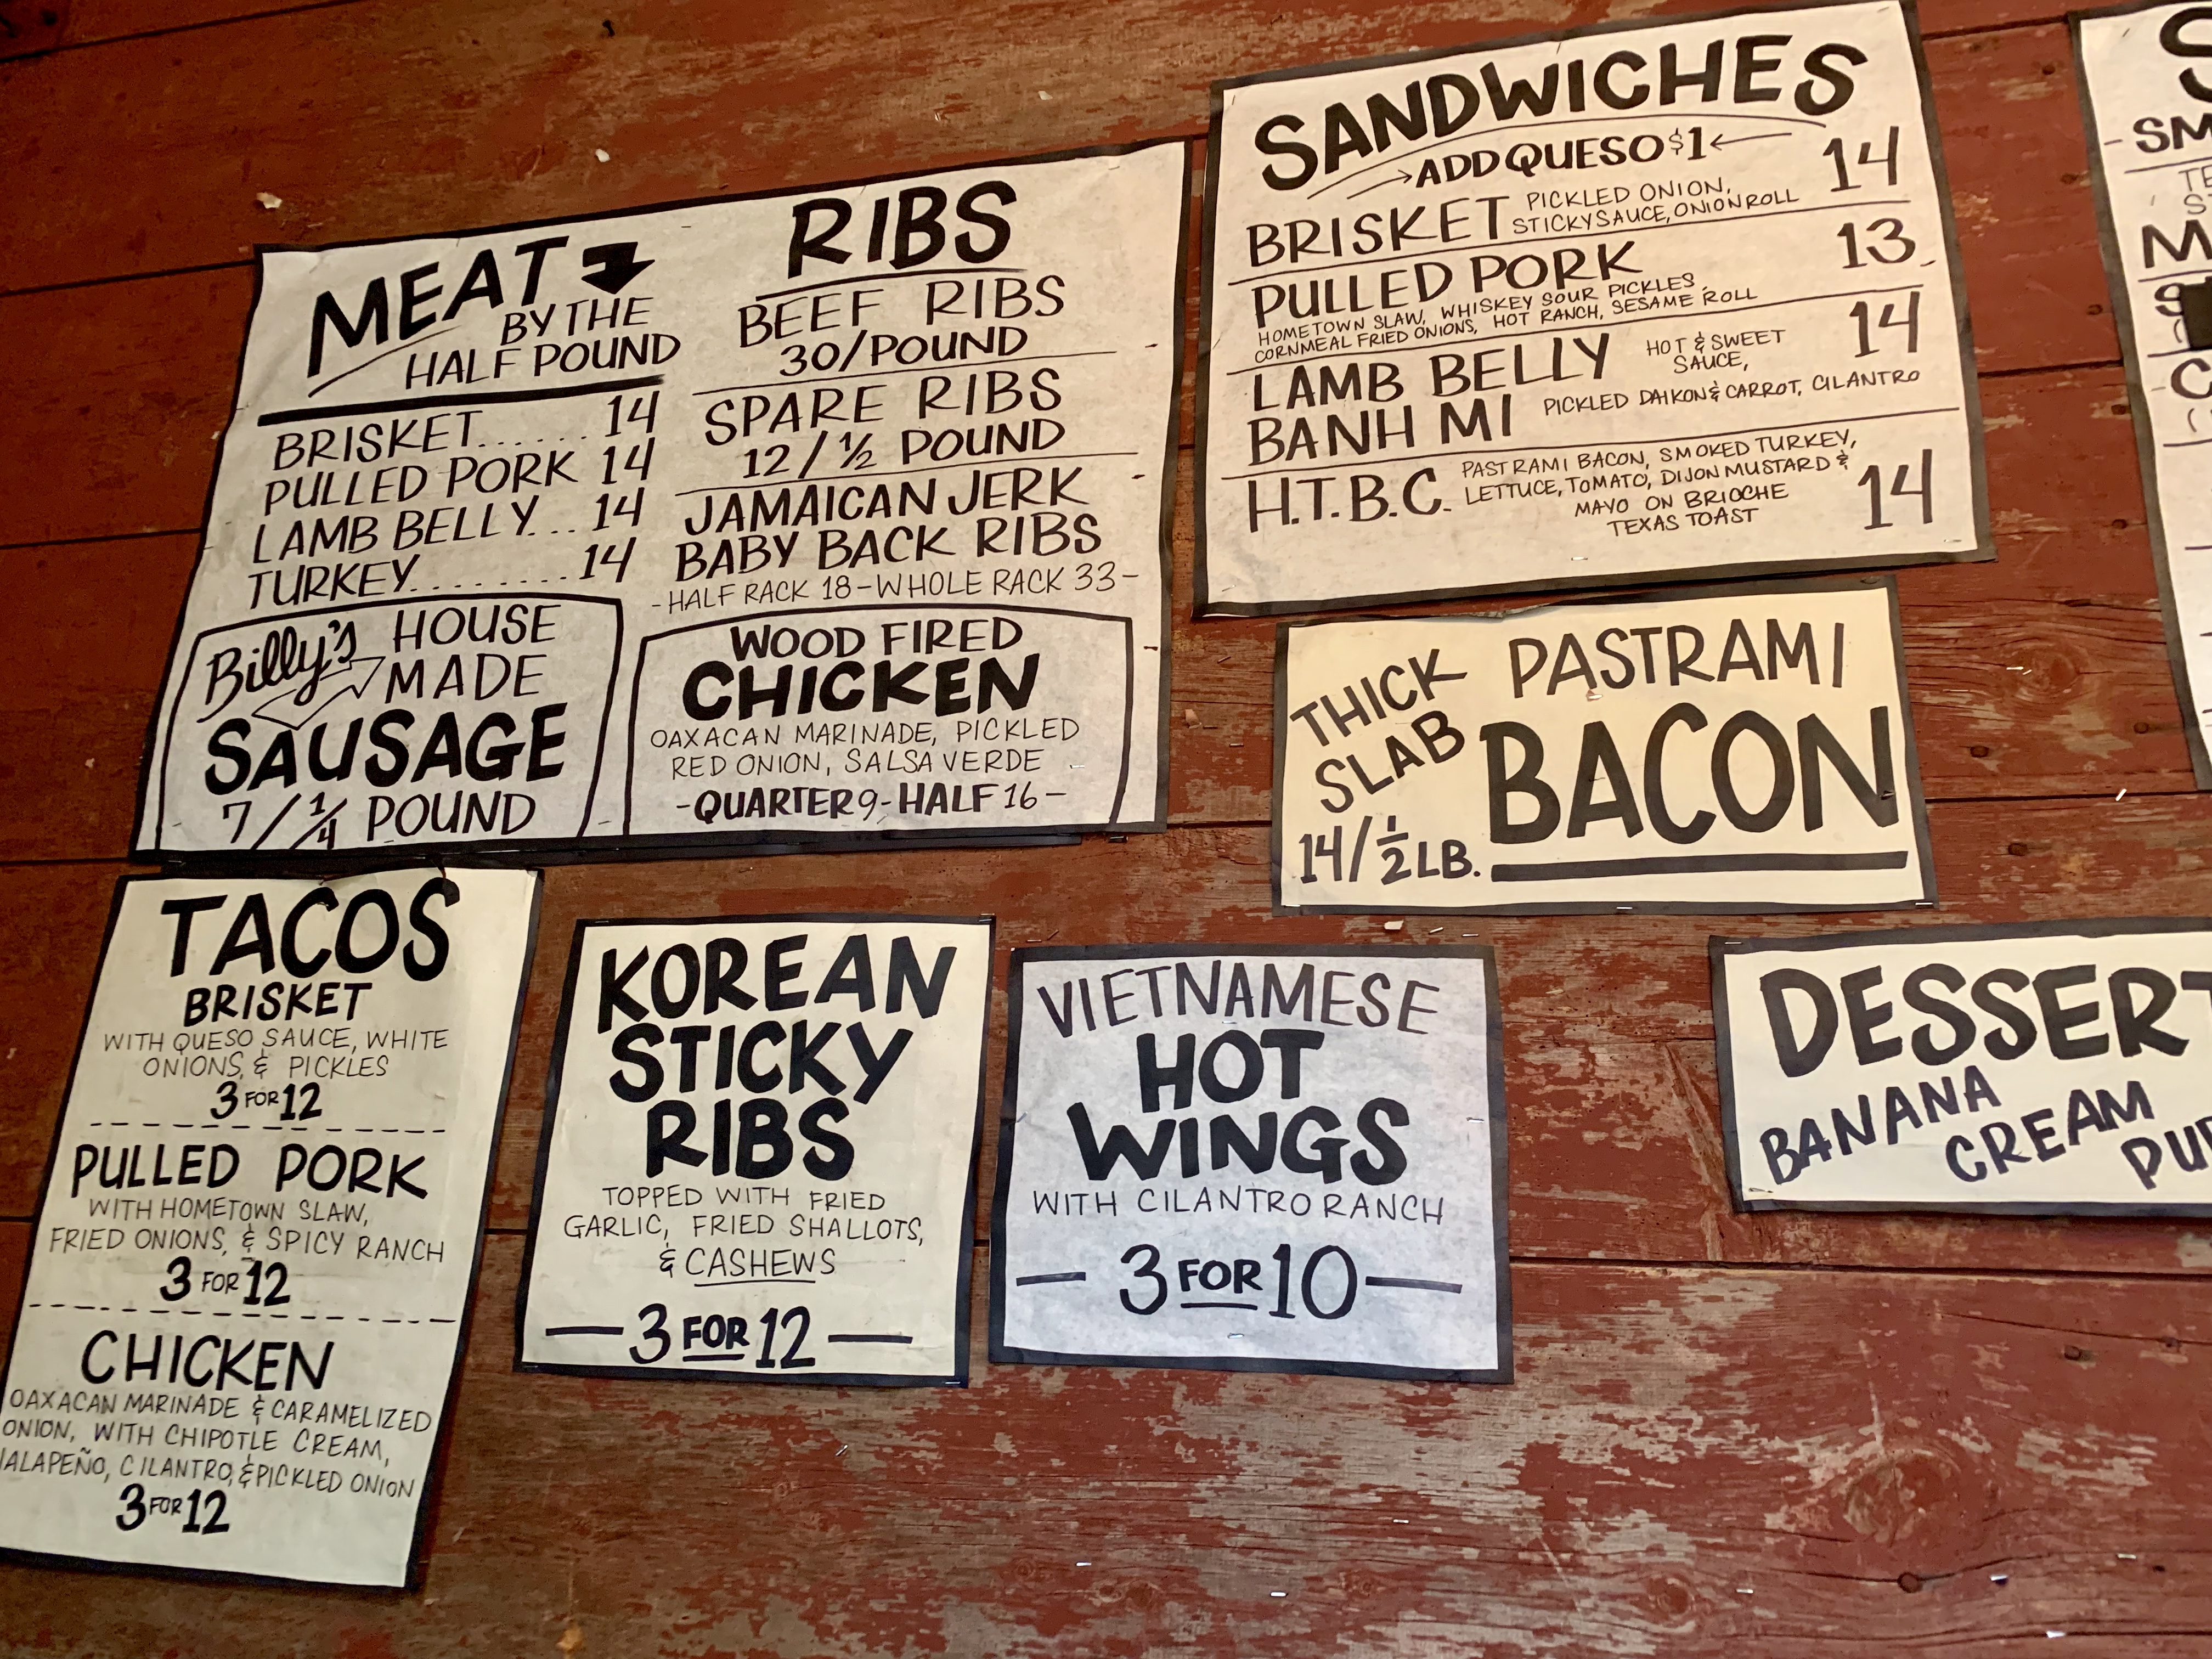 MEAT
BY THE
HALF POUND
BRISKET...... 14
PULLED PORK 14
LAMB BELLY... 14
TURKEY........ 14
Billy's HOUSE
MADE
SAUSAGE
7/1/4 POUND
RIBS
BEEF RIBS
30/POUND
SPARE RIBS
12/½ POUND
JAMAICAN JERK
BABY BACK RIBS
-HALF RACK 18-WHOLE RACK 33-
WOOD FIRED
CHICKEN
OAXACAN MARINADE, PICKLED
RED ONION, SALSA VERDE
-QUARTER 9-HALF 16-
SANDWICHES
ADD QUESO $1
BRISKET PICKLED ONION, 14
STICKY SAUCE, ONION ROLL
PULLED PORK 13
HOMETOWN SLAW, WHISKEY SOUR PICKLES,
CORNMEAL FRIED ONIONS, HOT RANCH, SESAME ROLL
LAMB BELLY HOT & SWEET 14
SAUCE,
BANH MI PICKLED DAIKON & CARROT, CILANTRO
H.T.B.C. PASTRAMI BACON, SMOKED TURKEY, 14
LETTUCE, TOMATO, DIJON MUSTARD &
MAYO ON BRIOCHE
TEXAS TOAST
THICK
SLAB
PASTRAMI
BACON
14/½ LB.
TACOS
BRISKET
WITH QUESO SAUCE, WHITE
ONIONS, & PICKLES
3 FOR 12
PULLED PORK
WITH HOMETOWN SLAW,
FRIED ONIONS, & SPICY RANCH
3 FOR 12
CHICKEN
OAXACAN MARINADE & CARAMELIZED
ONION, WITH CHIPOTLE CREAM,
JALAPEÑO, CILANTRO, & PICKLED ONION
3 FOR 12
KOREAN
STICKY
RIBS
TOPPED WITH FRIED
GARLIC, FRIED SHALLOTS,
& CASHEWS
— 3 FOR 12 —
VIETNAMESE
HOT
WINGS
WITH CILANTRO RANCH
— 3 FOR 10 —
DESSERT
BANANA
CREAM